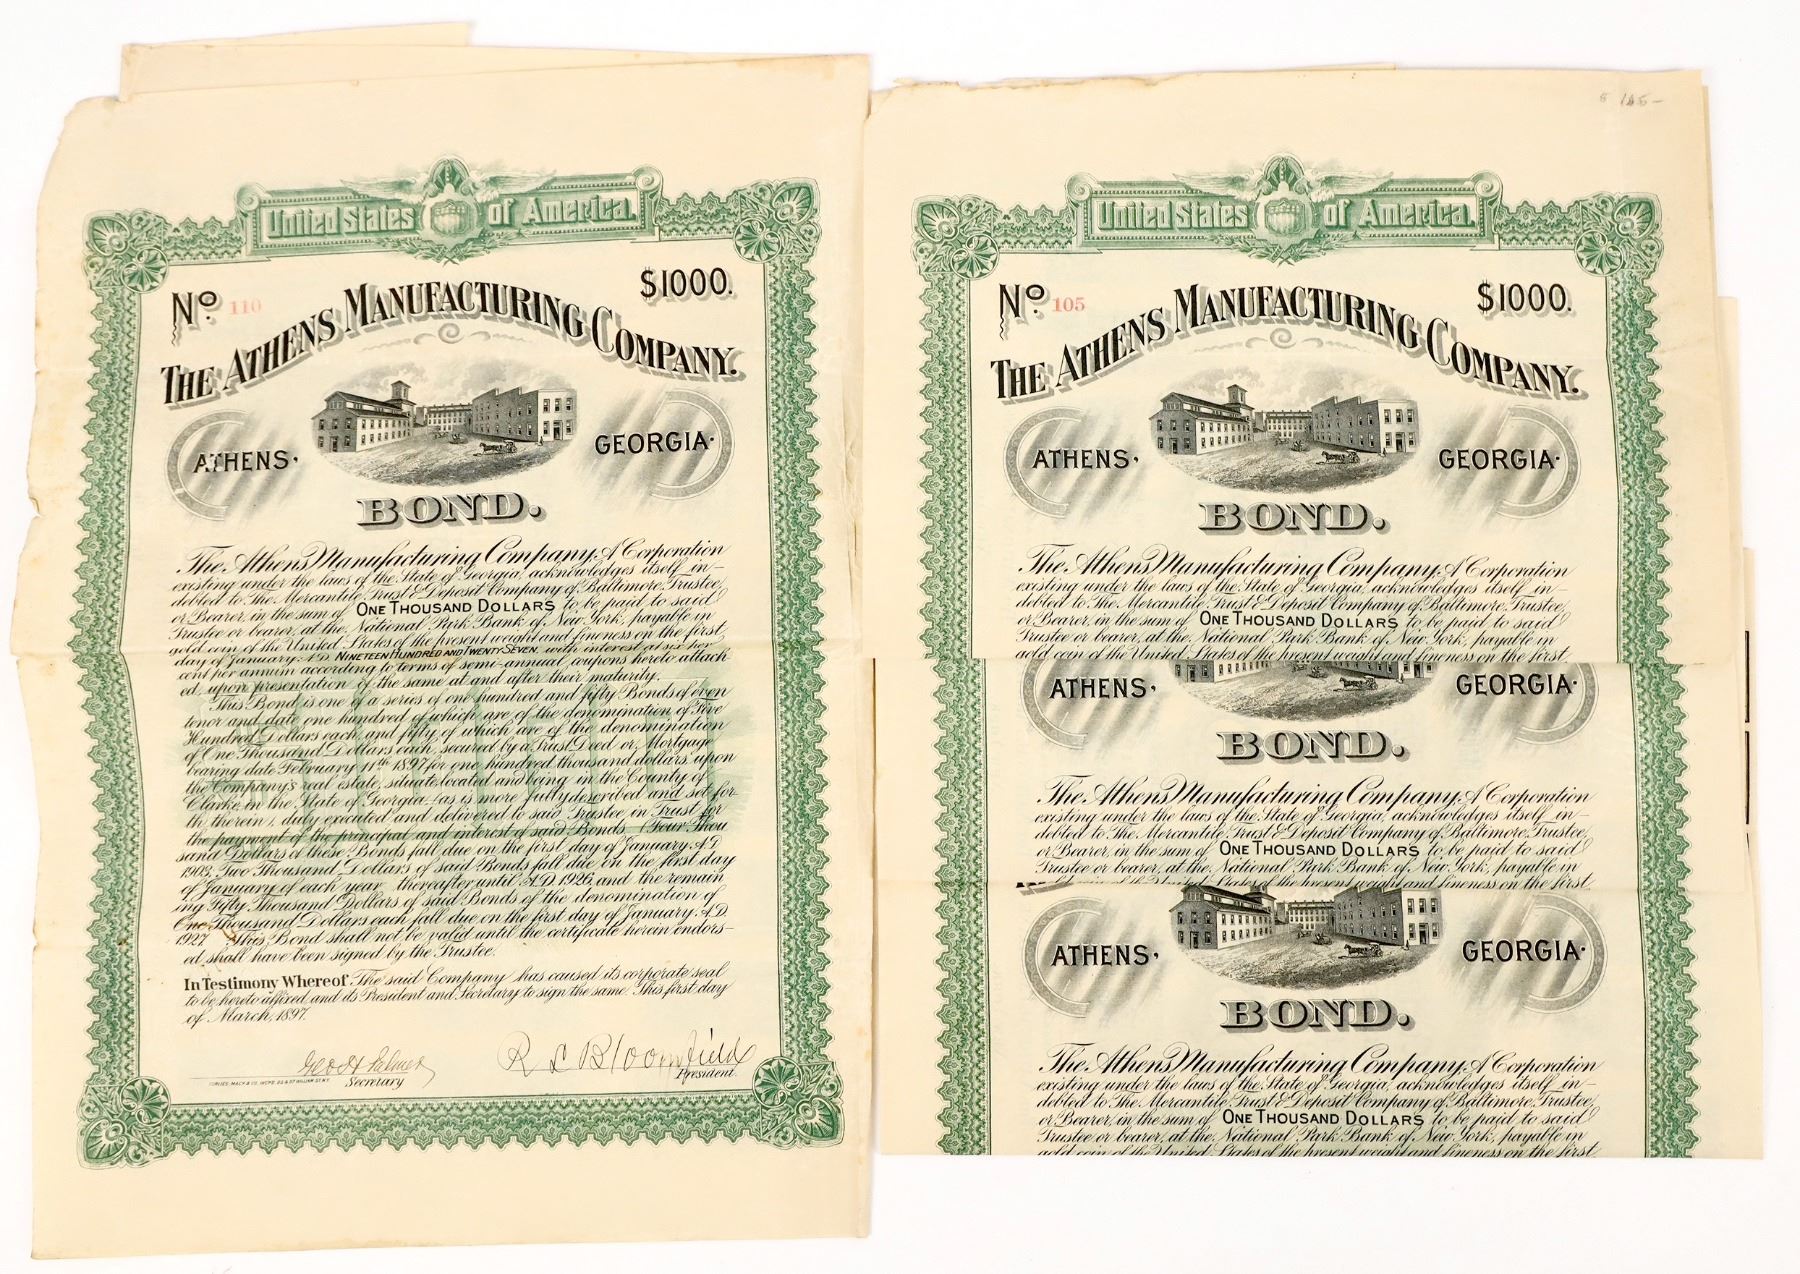 United States of America.
No. 110
$1000.
THE ATHENS MANUFACTURING COMPANY.
ATHENS, GEORGIA.
BOND.
The Athens Manufacturing Company, A Corporation
existing under the laws of the State of Georgia, acknowledges itself in-
debted to The Mercantile Trust & Deposit Company of Baltimore, Trustee,
or Bearer, in the sum of ONE THOUSAND DOLLARS to be paid to said
Trustee or bearer, at the National Park Bank of New York, payable in
gold coin of the United States of the present weight and fineness on the first
day of January A.D. NINETEEN HUNDRED AND TWENTY SEVEN with interest at six per
cent per annum according to terms of semi-annual coupons hereto attach-
ed, upon presentation of the same at and after their maturity.
This Bond is one of a series of one hundred and fifty Bonds of even
tenor and date one hundred of which are of the denomination of Five
Hundred Dollars each, and fifty of which are of the denomination
of One Thousand Dollars each, secured by a Trust Deed or Mortgage
bearing date February 11th 1897, for one hundred thousand dollars upon
the Company's real estate, situate located and being in the County of
Clarke in the State of Georgia, (as is more fully described and set for-
th therein), duly executed and delivered to said Trustee in Trust for
the payment of the principal and interest of said Bonds. Four Thou
sand Dollars of these Bonds fall due on the first day of January A.D.
1903, Two Thousand Dollars of said Bonds fall due on the first day
of January of each year thereafter until A.D. 1926, and the remain
ing Fifty Thousand Dollars of said Bonds of the denomination of
One Thousand Dollars each fall due on the first day of January, A.D.
1927 This Bond shall not be valid until the certificate herein endors-
ed shall have been signed by the Trustee.
In Testimony Whereof The said Company has caused its corporate seal
to be hereto affixed, and its President and Secretary to sign the same. This first day
of March, 1897.
R L Bloomfield
Secretary
President.
5 105-
United States of America.
No. 105
$1000.
THE ATHENS MANUFACTURING COMPANY.
ATHENS, GEORGIA.
BOND.
The Athens Manufacturing Company, A Corporation
existing under the laws of the State of Georgia, acknowledges itself in-
debted to The Mercantile Trust & Deposit Company of Baltimore, Trustee,
or Bearer, in the sum of ONE THOUSAND DOLLARS to be paid to said
Trustee or bearer, at the National Park Bank of New York, payable in
gold coin of the United States of the present weight and fineness on the first
ATHENS, GEORGIA.
BOND.
The Athens Manufacturing Company, A Corporation
existing under the laws of the State of Georgia, acknowledges itself in-
debted to The Mercantile Trust & Deposit Company of Baltimore, Trustee,
or Bearer, in the sum of ONE THOUSAND DOLLARS to be paid to said
Trustee or bearer, at the National Park Bank of New York, payable in
gold coin of the United States of the present weight and fineness on the first
ATHENS, GEORGIA.
BOND.
The Athens Manufacturing Company, A Corporation
existing under the laws of the State of Georgia, acknowledges itself in-
debted to The Mercantile Trust & Deposit Company of Baltimore, Trustee,
or Bearer, in the sum of ONE THOUSAND DOLLARS to be paid to said
Trustee or bearer, at the National Park Bank of New York, payable in
gold coin of the United States of the present weight and fineness on the first